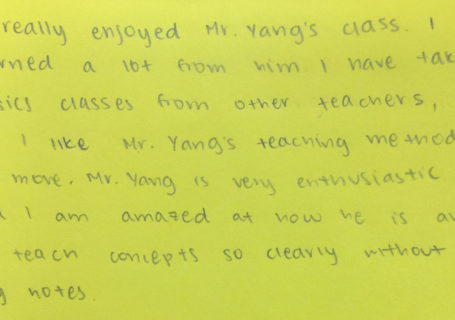 really enjoyed Mr. Yang's class. I
rned a lot from him I have tak
sics classes from other teachers,
I like Mr. Yang's teaching method
more. Mr. Yang is very enthusiastic
I am amazed at how he is a
teach concepts so clearly without
g notes.